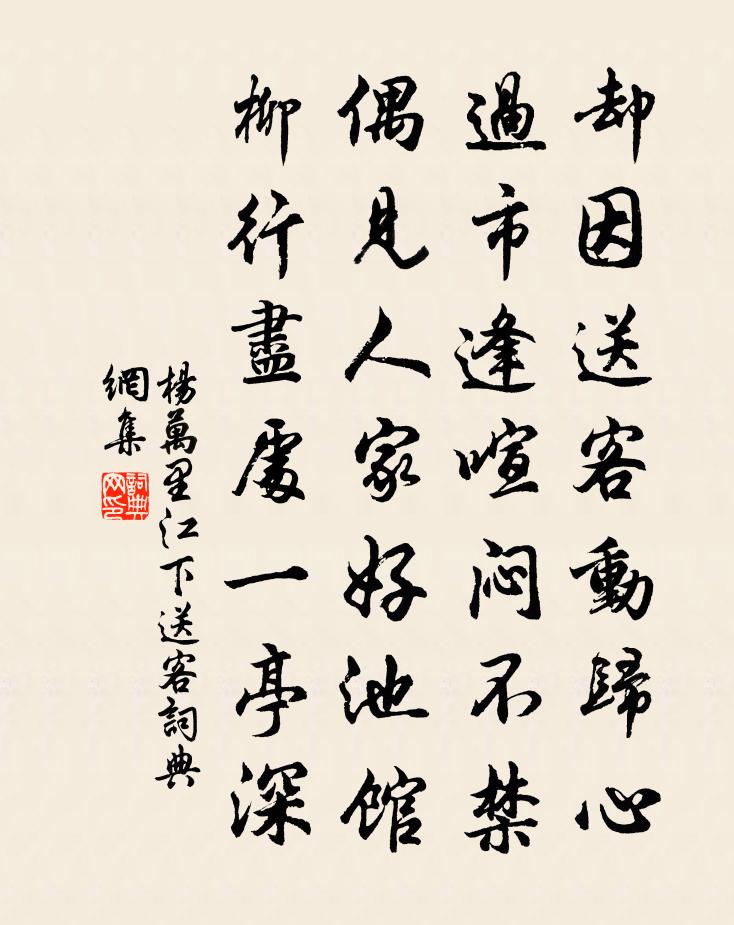 却因送客動歸心
過市逢喧悶不禁
偶見人家好池館
柳行盡處一亭深
楊萬里江下送客詞典
網集
詞典
网印